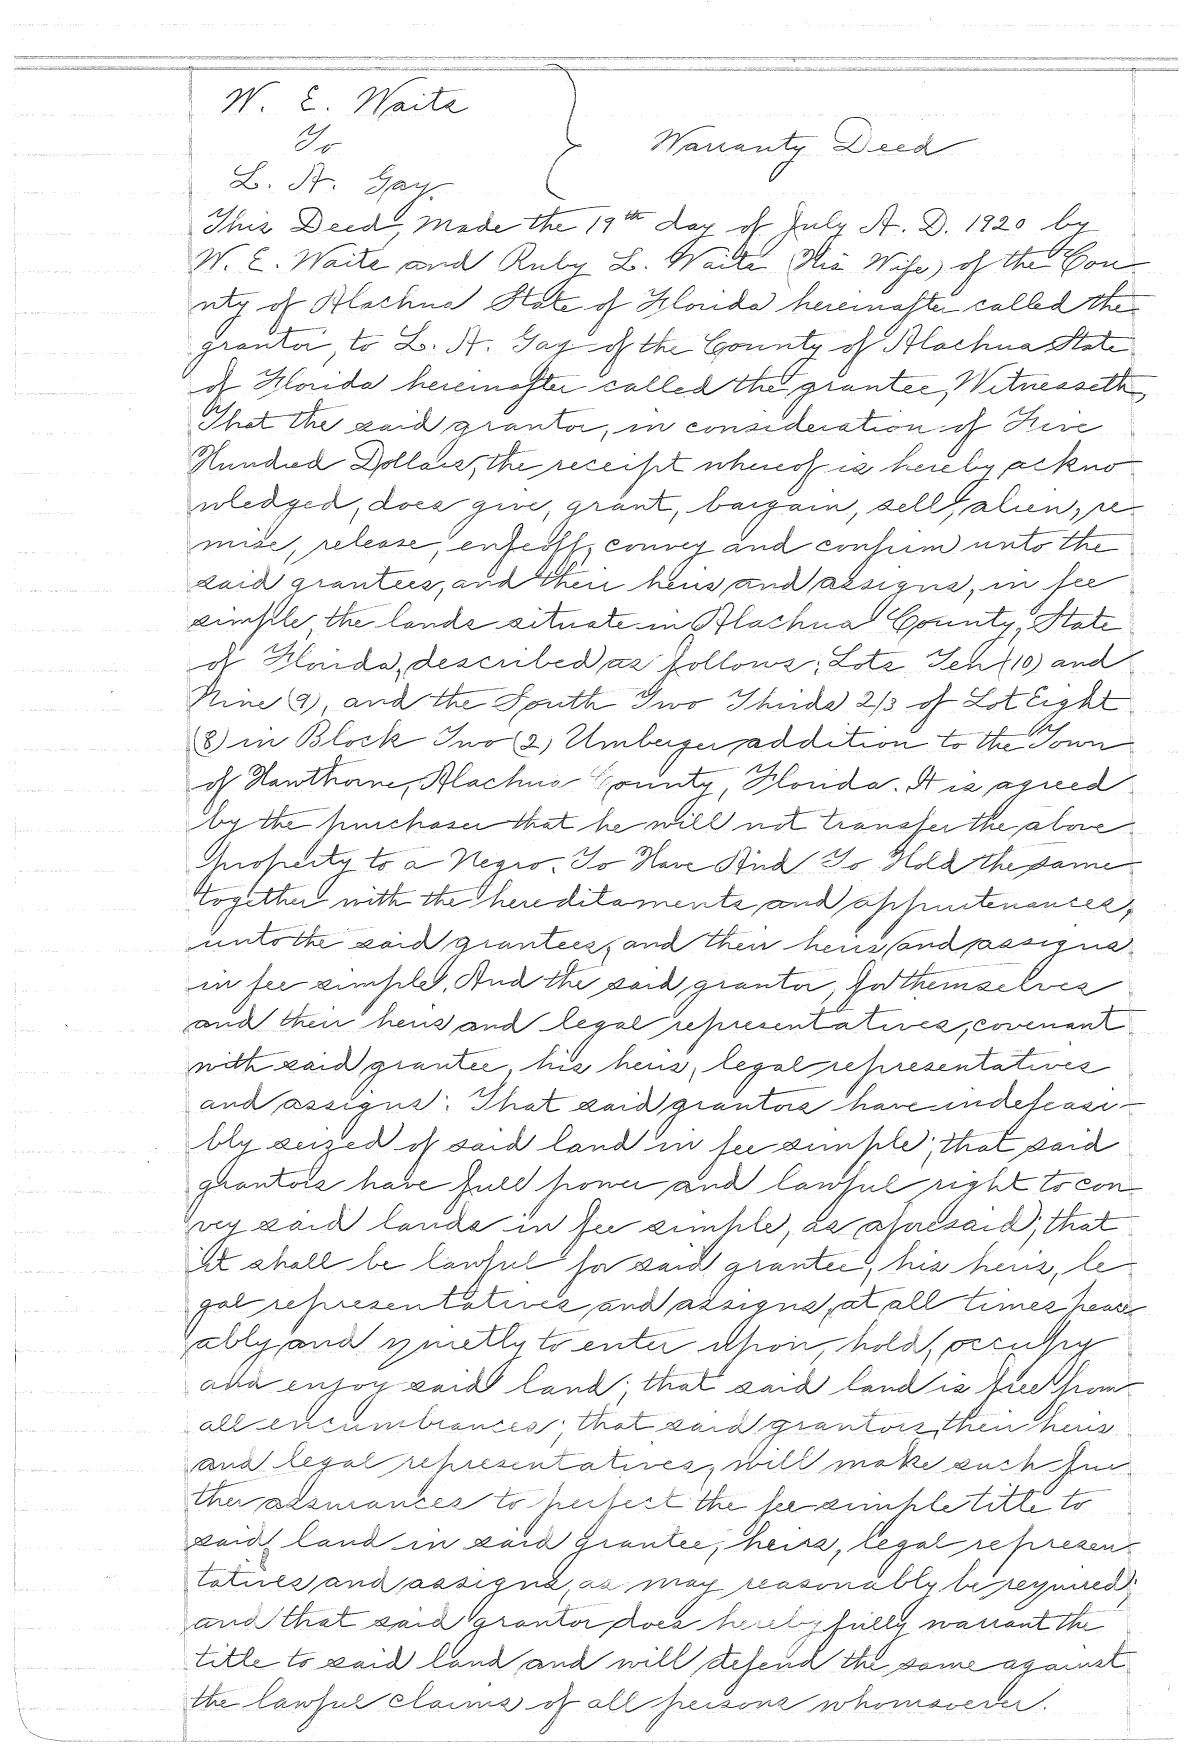 W. E. Waits
To
Warranty Deed
L. A. Gay.
This Deed, Made the 19th day of July A. D. 1920 by
W. E. Waits and Ruby L. Waits (His Wife) of the Cou
nty of Alachua State of Florida hereinafter called the
grantor, to L. A. Gay of the County of Alachua State
of Florida hereinafter called the grantee, Witnesseth,
That the said grantor, in consideration of Five
Hundred Dollars, the receipt whereof is hereby ackno
wledged, does give, grant, bargain, sell, alien, re
mise, release, enfeoff, convey and confirm unto the
said grantees, and their heirs and assigns, in fee
simple, the lands situate in Alachua County, State
of Florida, described as follows; Lots Ten (10) and
Nine (9), and the South Two Thirds 2/3 of Lot Eight
(8) in Block Two (2) Umberger addition to the Town
of Hawthorne, Alachua County, Florida. It is agreed
by the purchaser that he will not transfer the above
property to a Negro. To Have And To Hold the same
together with the hereditaments and appurtenances,
unto the said grantees, and their heirs and assigns
in fee simple. And the said grantor, for themselves
and their heirs and legal representatives, covenant
with said grantee, his heirs, legal representatives
and assigns: That said grantors have indefeasi-
bly seized of said land in fee simple; that said
grantors have full power and lawful right to con
vey said lands in fee simple, as aforesaid; that
it shall be lawful for said grantee, his heirs, le
gal representatives and assigns, at all times peace
ably and quietly to enter upon, hold, occupy
and enjoy said land; that said land is free from
all encumbrances; that said grantors, their heirs
and legal representatives, will make such fur
ther assurances to perfect the fee simple title to
said land in said grantee, heirs, legal represen
tatives and assigns, as may reasonably be required;
and that said grantor does hereby fully warrant the
title to said land and will defend the same against
the lawful claims of all persons whomsoever.